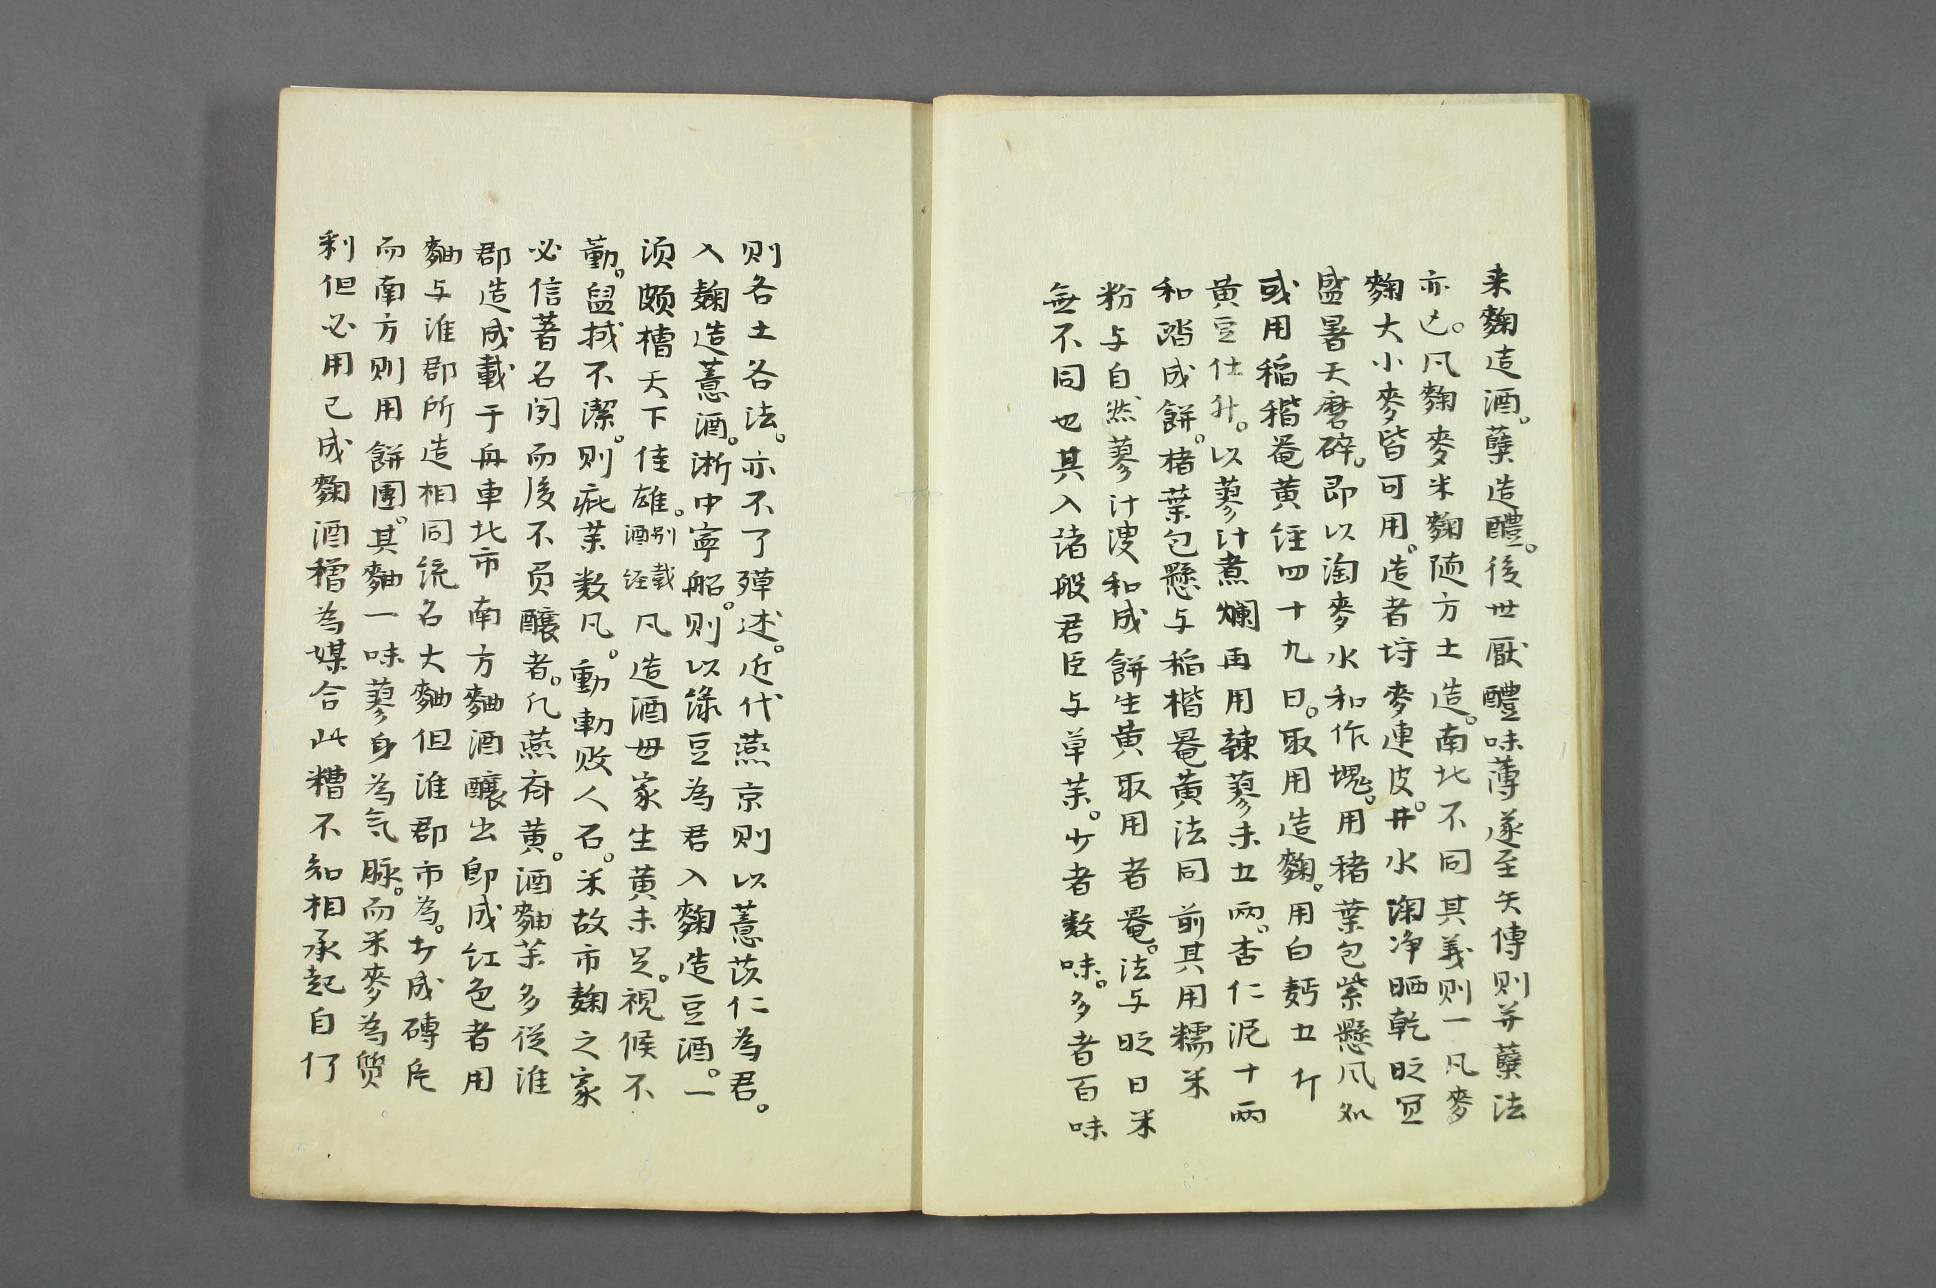 来麴造酒。糵造醴。後世厭醴味薄遂至失傳則并糵法
亦亡。凡麴麥米麴随方土造。南北不同其義則一凡麥
麴大小麥皆可用。造者将麥連皮。井水淘净晒乾旼宜
盛暑天磨碎。即以淘麥水和作塊。用楮葉包紮懸风処
或用稲稭罨黄経四十九日。取用造麴。用白麪五斤
黄豆伍升。以蓼汁煮爛再用辣蓼末五两。杏仁泥十两
和踏成餅。楮葉包懸与稲楷罨黄法同前其用糯米
粉与自然蓼汁溲和成餅生黄取用者罨。法与旼日米
無不同也其入諸般君臣与草茉。少者数味。多者百味
则各土各法。亦不了殫述。近代燕京则以薏苡仁為君。
入麹造薏酒。淅中寧船。则以綠豆為君入麴造豆酒。一
须颇槽天下佳雄。别載酒经凡造酒毋家生黄未足。視候不
勤。盥拭不潔。则疵茉数凡。動輙败人石。米故市麹之家
必信著名闵而後不负釀者。凢燕斉黄。酒麯茉多從淮
郡造成載于舟車北市南方麯酒釀出卽成红色者用
麯与淮郡所造相同统名大麯但淮郡市為。才成磚片
而南方则用餅團。其麯一味蓼身為気脉。而米麥為质
剩但必用已成麴酒糟為媒合此糟不知相承起自何